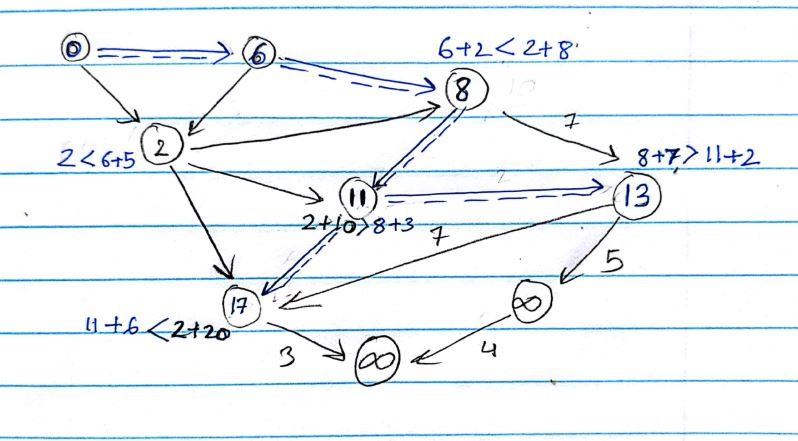 6+2 < 2+8
0
6
8
7
2 < 6+5
2
8+7 > 11+2
11
13
2+10 > 8+3
7
5
17
∞
11+6 < 2+20
3
∞
4